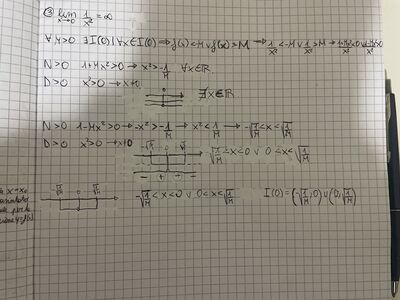 ③ lim x→0 1/x² = ∞
∀ M>0 ∃ I(0) | ∀x∈I(0) → f(x)<-M ∨ f(x)>M → 1/x² < -M ∨ 1/x² > M →
N>0 1+Mx²>0 → x²>-1/M ∀x∈ℝ
D>0 x²>0 → x≠0
∄x∈ℝ
N>0 1-Mx²>0 → -x²>-1/M → x²<1/M → -√1/M<x<√1/M
D>0 x²>0 → x≠0
-√1/M 0 √1/M
-√1/M<x<0 ∨ 0<x<√1/M
- + + -
-√1/M 0 √1/M
-√1/M<x<0 ∨ 0<x<√1/M I(0)=(-√1/M;0)∪(0;√1/M)